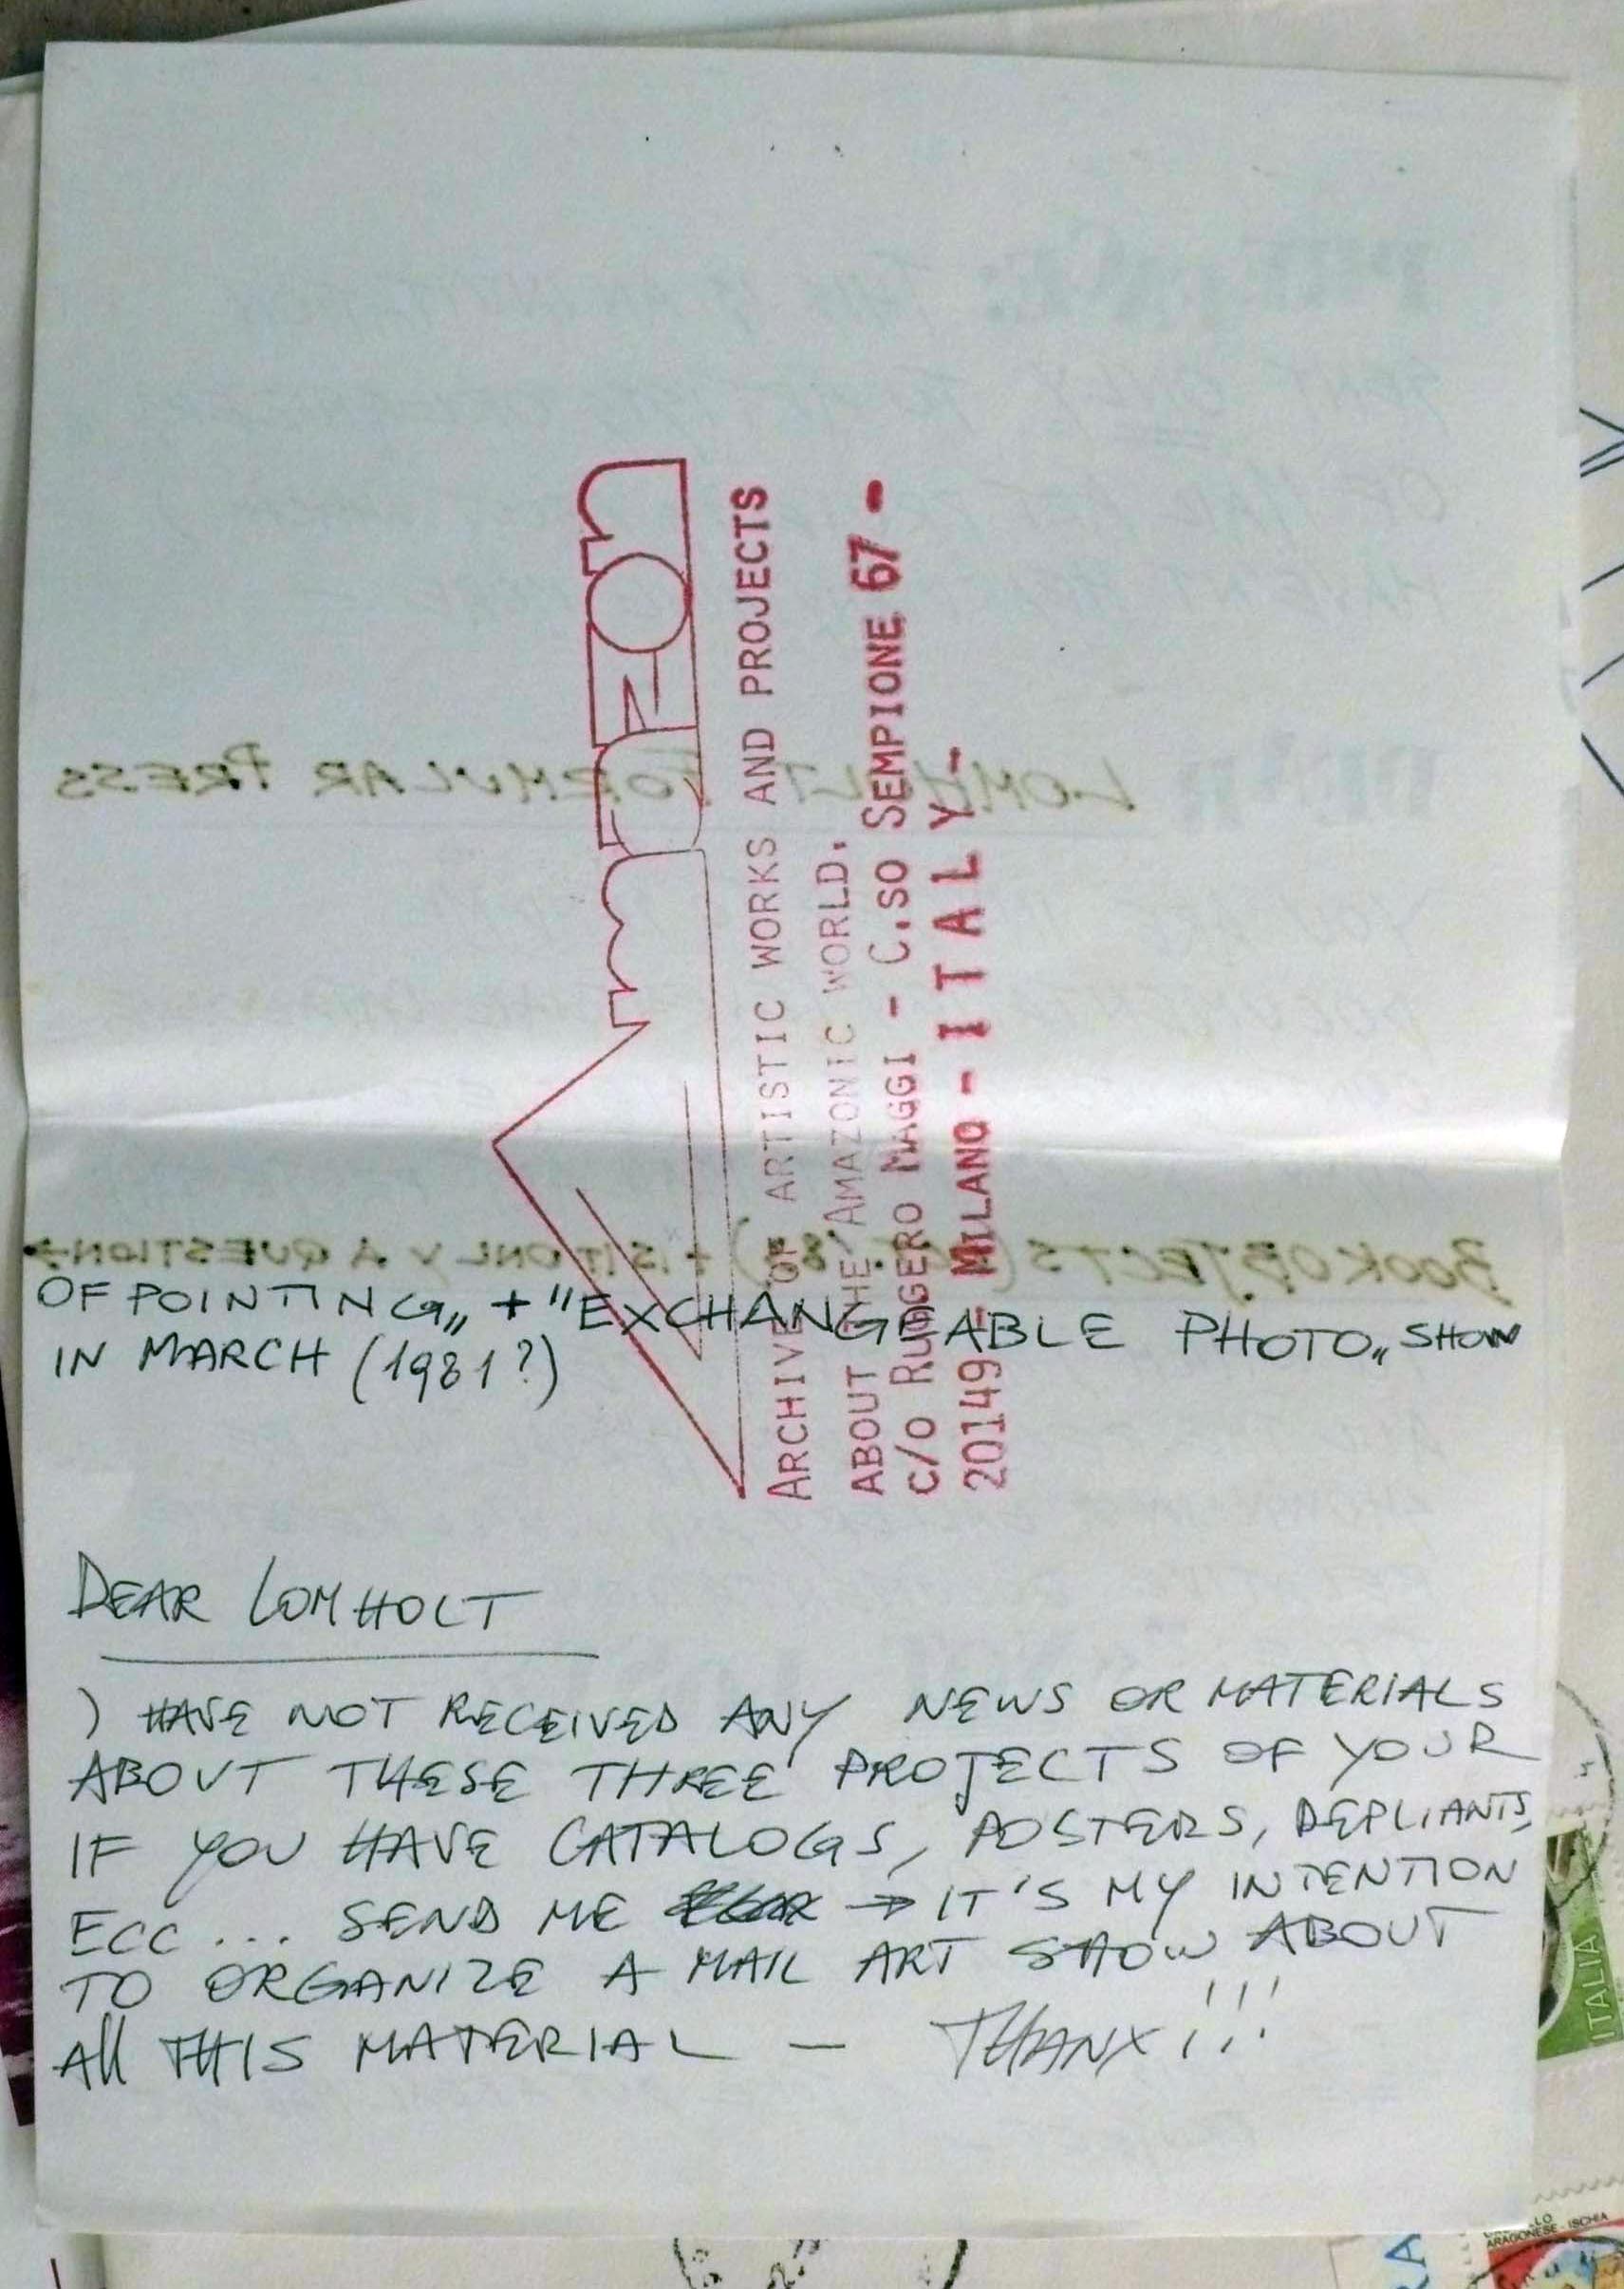 Amazon
ARCHIVE OF ARTISTIC WORKS AND PROJECTS
ABOUT THE AMAZONIC WORLD.
C/O RUGGERO MAGGI - C.SO SEMPIONE 67 -
20149 - MILANO - ITALY -
LOMHOLT FORMULAR PRESS
BOOK OBJECTS + IS IT ONLY A QUESTION →
OF POINTING,, + "EXCHANGEABLE PHOTO,, SHOW
IN MARCH (1981?)
DEAR LOMHOLT
I HAVE NOT RECEIVED ANY NEWS OR MATERIALS
ABOUT THESE THREE PROJECTS OF YOUR
IF YOU HAVE CATALOGS, POSTERS, DEPLIANTS,
ECC... SEND ME → IT'S MY INTENTION
TO ORGANIZE A MAIL ART SHOW ABOUT
All THIS MATERIAL — THANX!!!
ITALIA
ARAGONESE - ISCHIA